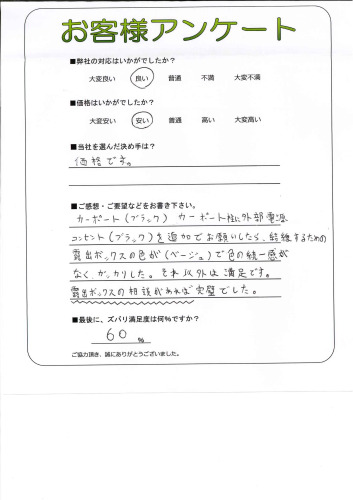 お客様アンケート
■弊社の対応はいかがでしたか？
大変良い　良い　普通　不満　大変不満
■価格はいかがでしたか？
大変安い　安い　普通　高い　大変高い
■当社を選んだ決め手は？
価格です。
■ご感想・ご要望などをお書き下さい。
カーポート(ブラック) カーポート柱に外部電源
コンセント(ブラック)を追加でお願いしたら、結線するための
露出ボックスの色が(ベージュ)で色の統一感が
なく、ガッカリした。それ以外は満足です。
露出ボックスの相談があれば完璧でした。
■最後に、ズバリ満足度は何%ですか？
60 %
ご協力頂き、誠にありがとうございました。